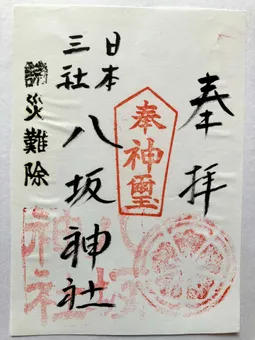 奉拝
奉
神璽
日本
三社
八坂神社
災難除
八坂
神社